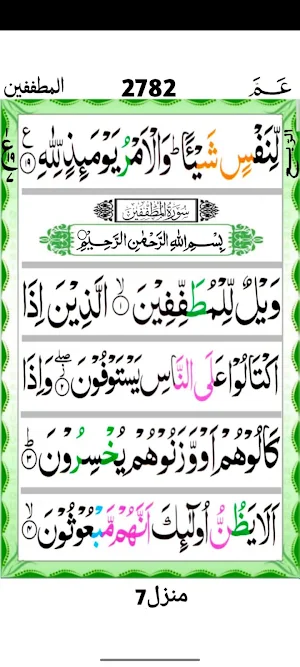 المطففين 2782 عَـمَّ
لِّنَفْسٍ شَيْـًٔا ؕ وَالْاَمْرُ يَوْمَئِذٍ لِّلّٰهِ ﴿۱۹﴾
سُوْرَةُ الْمُطَفِّفِيْنَ
بِسْمِ اللّٰهِ الرَّحْمٰنِ الرَّحِيْمِ
وَيْلٌ لِّلْمُطَفِّفِيْنَ ۙ﴿۱﴾ الَّذِيْنَ اِذَا
اكْتَالُوْا عَلَى النَّاسِ يَسْتَوْفُوْنَ ۖ﴿۲﴾ وَاِذَا
كَالُوْهُمْ اَوْ وَّزَنُوْهُمْ يُخْسِرُوْنَ ؕ﴿۳﴾
اَلَا يَظُنُّ اُولٰٓئِكَ اَنَّهُمْ مَّبْعُوْثُوْنَ ۙ﴿۴﴾
منزل7